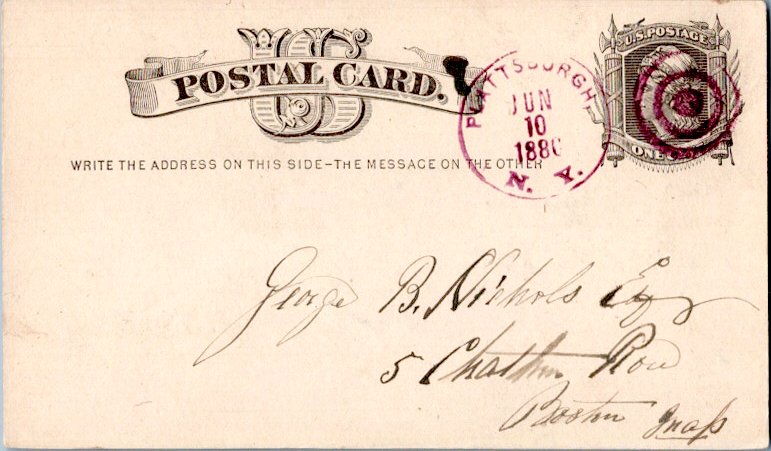 US
POSTAL CARD.
U.S. POSTAGE
ONE
WRITE THE ADDRESS ON THIS SIDE-THE MESSAGE ON THE OTHER
PLATTSBURGH,
JUN
10
1880
N. Y.
George B. Nichols Esq
5 Chatham Row
Boston Mass